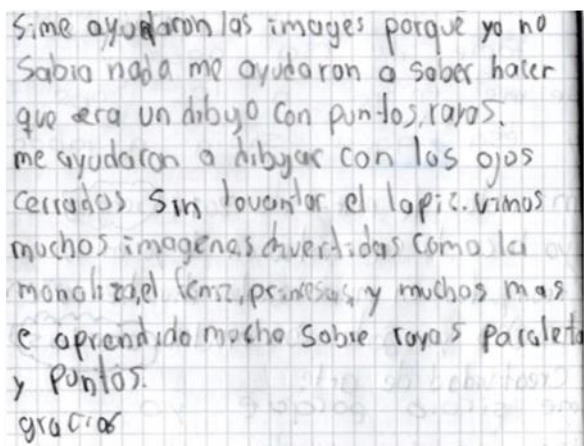 Sime ayudaron las images porque yo no
Sabia nada me ayudaron a saber hacer
que era un dibuyo con puntos, rayas.
me ayudaron a dibyar con los ojos
cerrados Sin lovantar el lapiz. vimos
muchos imagenes divertidas como la
monaliza, el princesas, y muchos mas
e aprendido mocho sobre rayas paralela
y puntos.
gracias